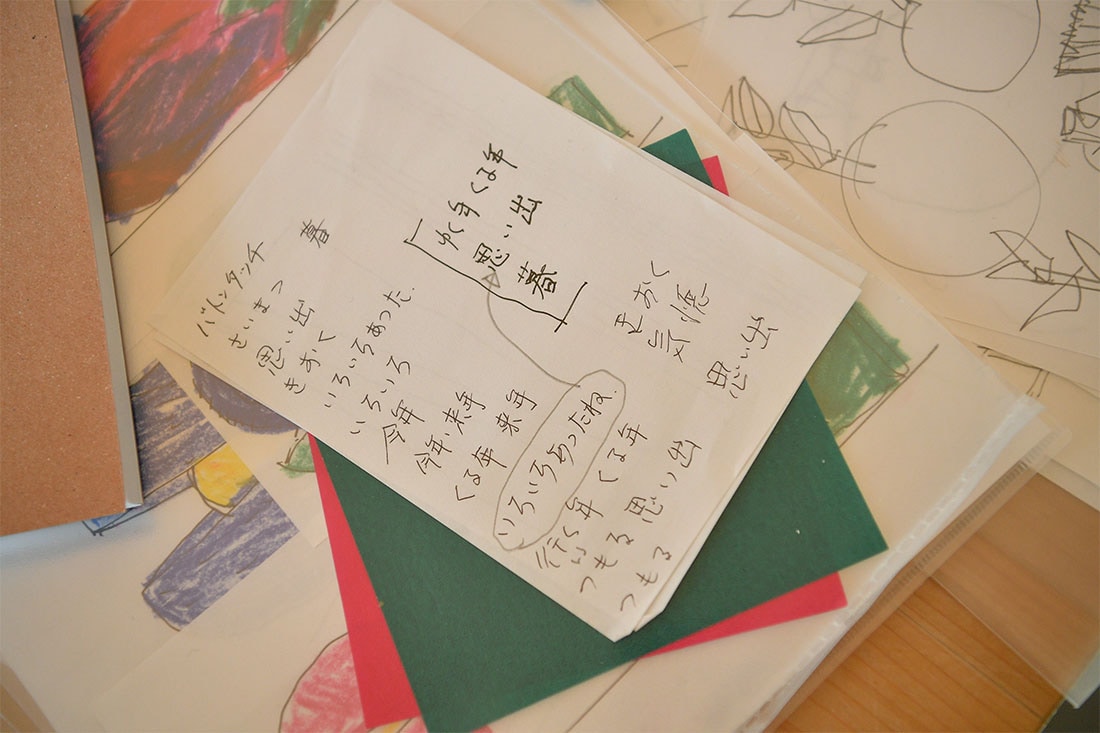 バトンタッチ
暮
思い出
きおく
いろいろあった。
いろいろ
今年
今年・来年
くる年　来年
「ゆく年くる年
思い出
暮」
いろいろあったね。
行く年くる年
つもる思い出
つもる
きおく
思い出